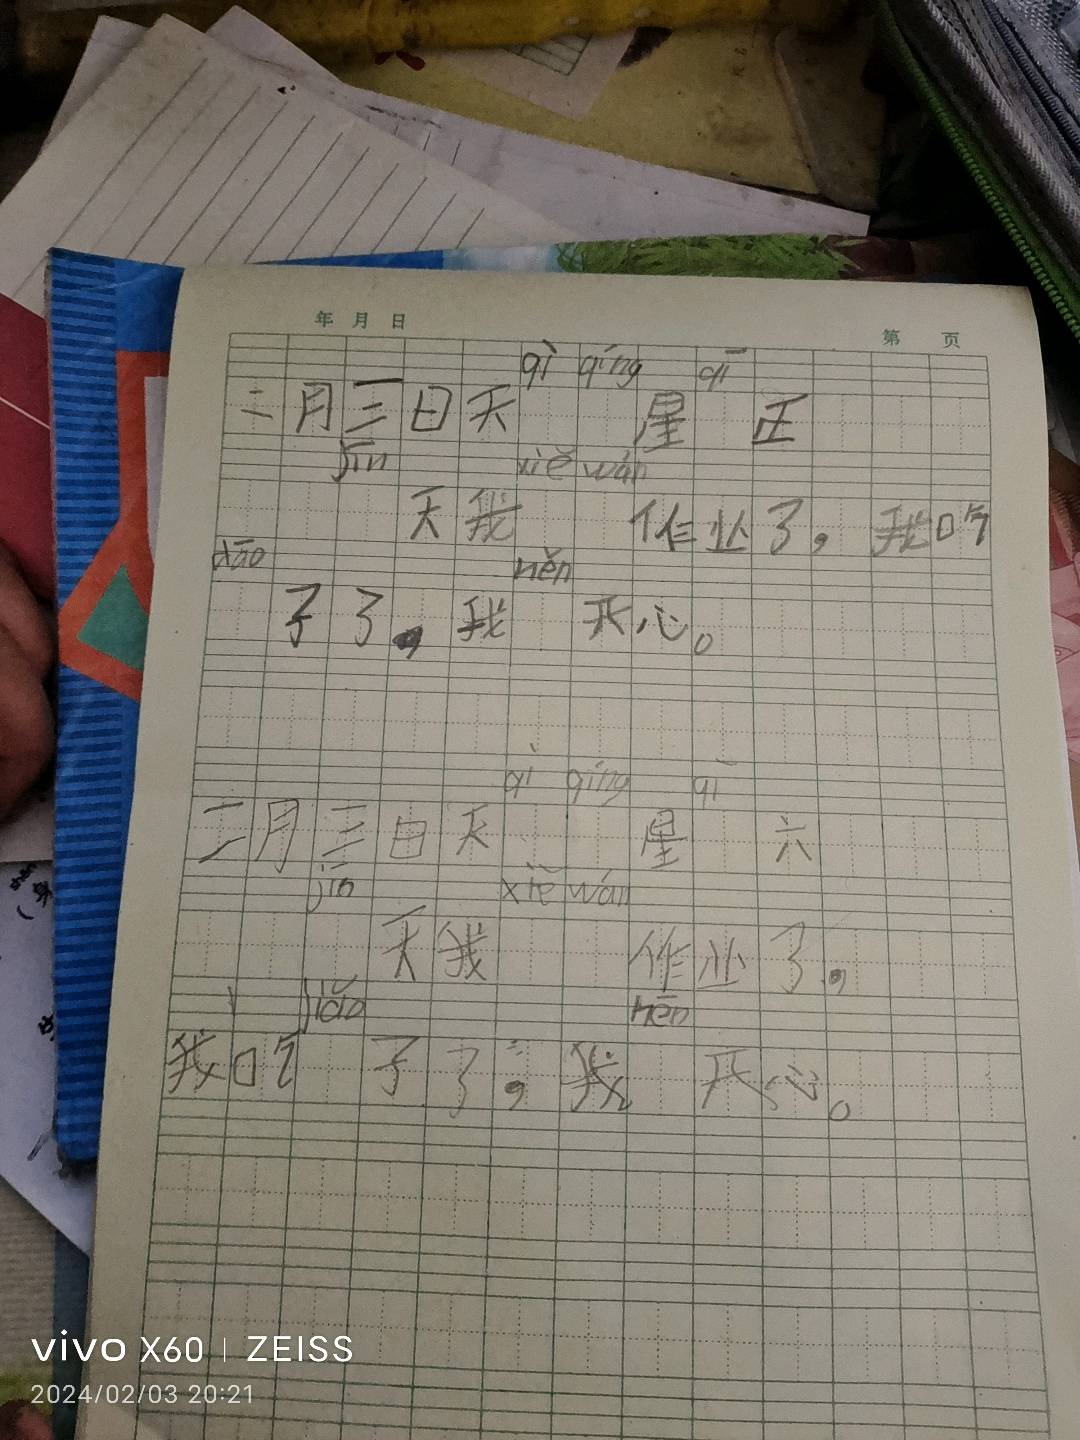 年 月 日
第 页
qì qíng qī
二月三日天 星 正
jīn xiě wán
天我 作业了，我吃
něn
子了，我 开心。
qì qíng qī
二月三日天 星 六
jīn xiě wán
天我 作业了，
jiǎo hěn
我吃 子了，我 开心。
vivo X60 | ZEISS
2024/02/03 20:21